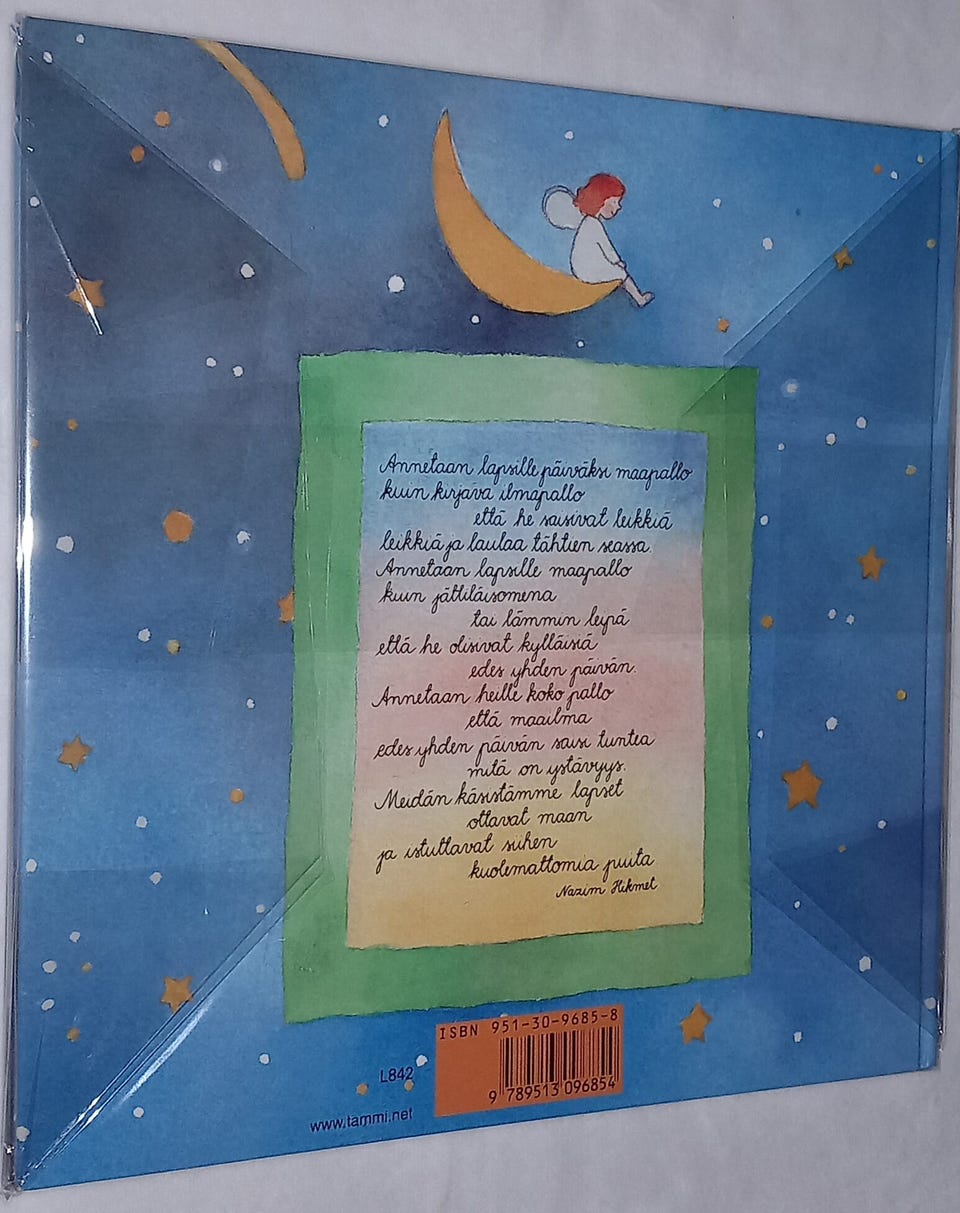 Annetaan lapsille päiväksi maapallo
kuin kirjava ilmapallo
että he saisivat leikkiä
leikkiä ja laulaa tähtien seassa.
Annetaan lapsille maapallo
kuin jättiläisomena
tai lämmin leipä
että he olisivat kylläisiä
edes yhden päivän.
Annetaan heille koko pallo
että maailma
edes yhden päivän saisi tuntea
mitä on ystävyys.
Meidän käsistämme lapset
ottavat maan
ja istuttavat siihen
kuolemattomia puita
Nazim Hikmet
ISBN 951-30-9685-8
9 789513 096854
L842
www.tammi.net